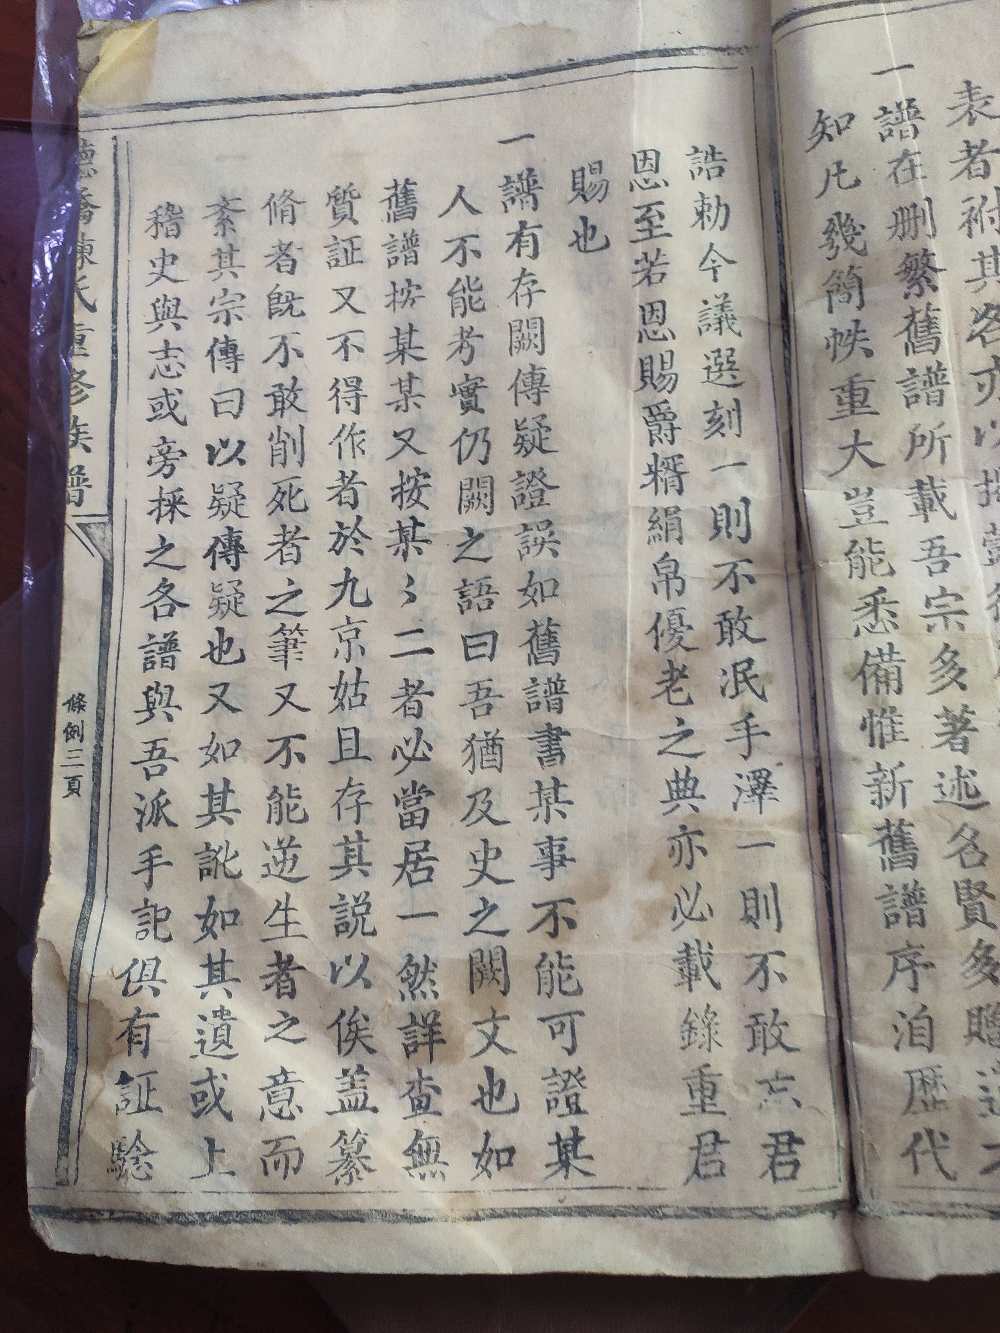 表者祔其名亦以
一譜在刪繁舊譜所載吾宗多著述名賢多贈
知凡幾简帙重大豈能悉備惟新舊譜序洎歷代
誥勅今議選刻一則不敢泯手澤一則不敢忘君
恩至若恩賜爵糈絹帛優老之典亦必載錄重君
賜也
一譜有存闕傳疑證誤如舊譜書某事不能可證某
人不能考實仍闕之語曰吾猶及史之闕文也如
舊譜按某某又按某〻二者必當居一然詳查無
質証又不得作者於九京姑且存其説以俟盖纂
脩者既不敢削死者之筆又不能逆生者之意而
紊其宗傳曰以疑傳疑也又如其訛如其遺或上
稽史與志或旁採之各譜與吾派手記俱有証驗
氏重修族譜
條例三頁